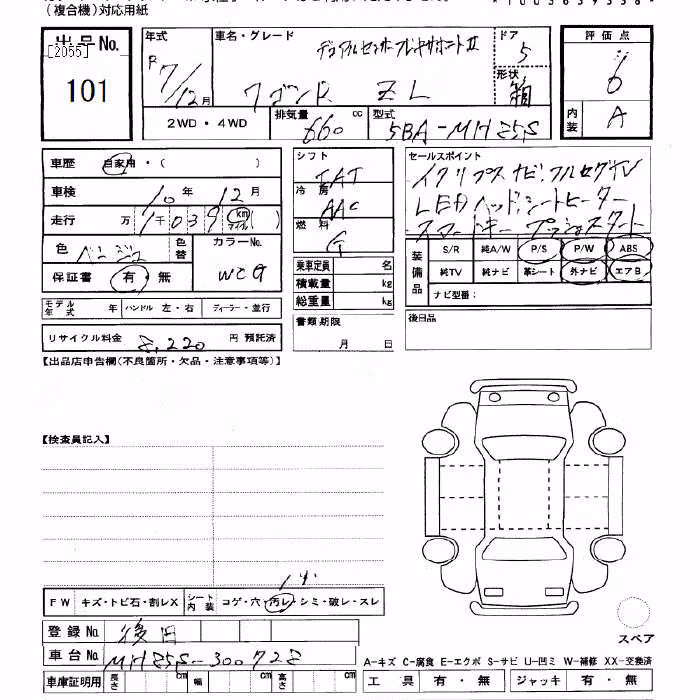 (複合機)対応用紙
出品No.
[2055]
101
年式
R 7/12月
車名・グレード
デュアルセンサーブレーキサポートⅡ
ワゴンR ZL
ドア
5
形状
箱
評価点
6
内装
A
2WD・4WD
排気量
660 cc
型式
5BA-MH85S
車歴
自家用・( )
車検
10年 12月
走行
万 1千039 km マイル ( )
色
ベージュ
色替
カラーNo.
WC9
保証書
有・無
モデル年式
年
ハンドル 左・右
ディーラー・並行
リサイクル料金
8,220 円 預託済
シフト
IAT
冷房
AAC
燃料
G
乗車定員
名
積載量
kg
総重量
kg
書類期限
月 日
セールスポイント
イクリプスナビ、フルセグTV
LEDヘッド、シートヒーター
スマートキー プッシュスタート
装備品
S/R
純A/W
P/S
P/W
ABS
純TV
純ナビ
革シート
外ナビ
エアB
ナビ型番:
後日品
【出品店申告欄(不良箇所・欠品・注意事項等)】
【検査員記入】
FW
キズ・トビ石・割レX
シート内装
コゲ・穴・汚レ・シミ・破レ・スレ
登録No.
後日
車台No.
MH85S-300728
車庫証明用
長さ
cm
幅
cm
高さ
cm
スペア
A-キズ C-腐食 E-エクボ S-サビ U-凹ミ W-補修 XX-交換済
工具
有・無
ジャッキ
有・無